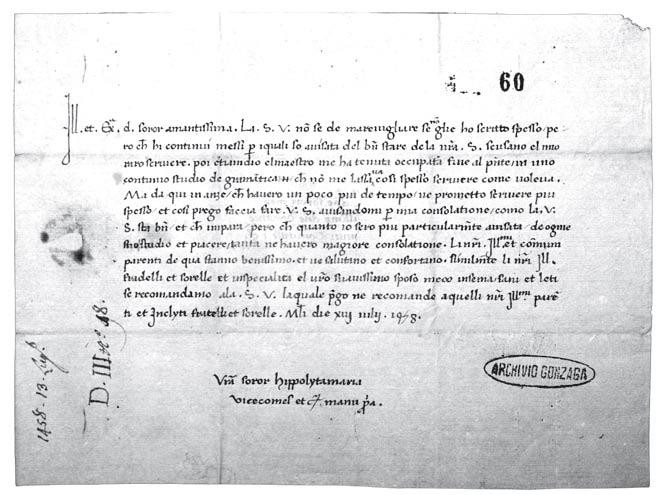 60
Ill. et. Ex. d. soror amantissima. La. S. V. nō se de marevigliare se nō gle ho scritto spesso/pe/
ro ch̄ hi continui messi p iquali so avisata del bn̄ stare de la nr̄a. S. scusano el mio
nro scrivere. poi etiamdio elmaestro me ha tenuta occupata fine al pnte/in uno
continuo studio de gramatica/ch̄ nō me lassava così spesso scrivere come voleva.
Ma da qui inanze/ch̄ havero un poco piu de tempo/ve prometto scrivere piu
spesso/et così prego faccia fare. V. S. avisandomi p mia consolatione/como la. V.
S. sta bn̄/et ch̄ impara/pero ch̄ quanto io sero piu particularmte avisata/de ogne
suo studio et piacere/tanta ne havero magiore consolatione. Li nr̄i. Ill.mi et comuni
parenti de qua stanno benissimo/et ve salutano et confortano. similmte li nr̄i Ill.
fradelli et sorelle et inspecialita el vr̄o suavissimo sposo meco insema/sani et leti
se recomandamo ala. S. V. laquale p̄go ne recomande aquelli nr̄i Ill.mi parē/
ti et Inclyti fratelli et sorelle. Mli die xiij iulij. 1458.
Vr̄a soror hippolytamaria
vicecomes et c̄. manu pp̄a.
ARCHIVIO GONZAGA
D. III n.° 48.
1458 - 13. Lug.o